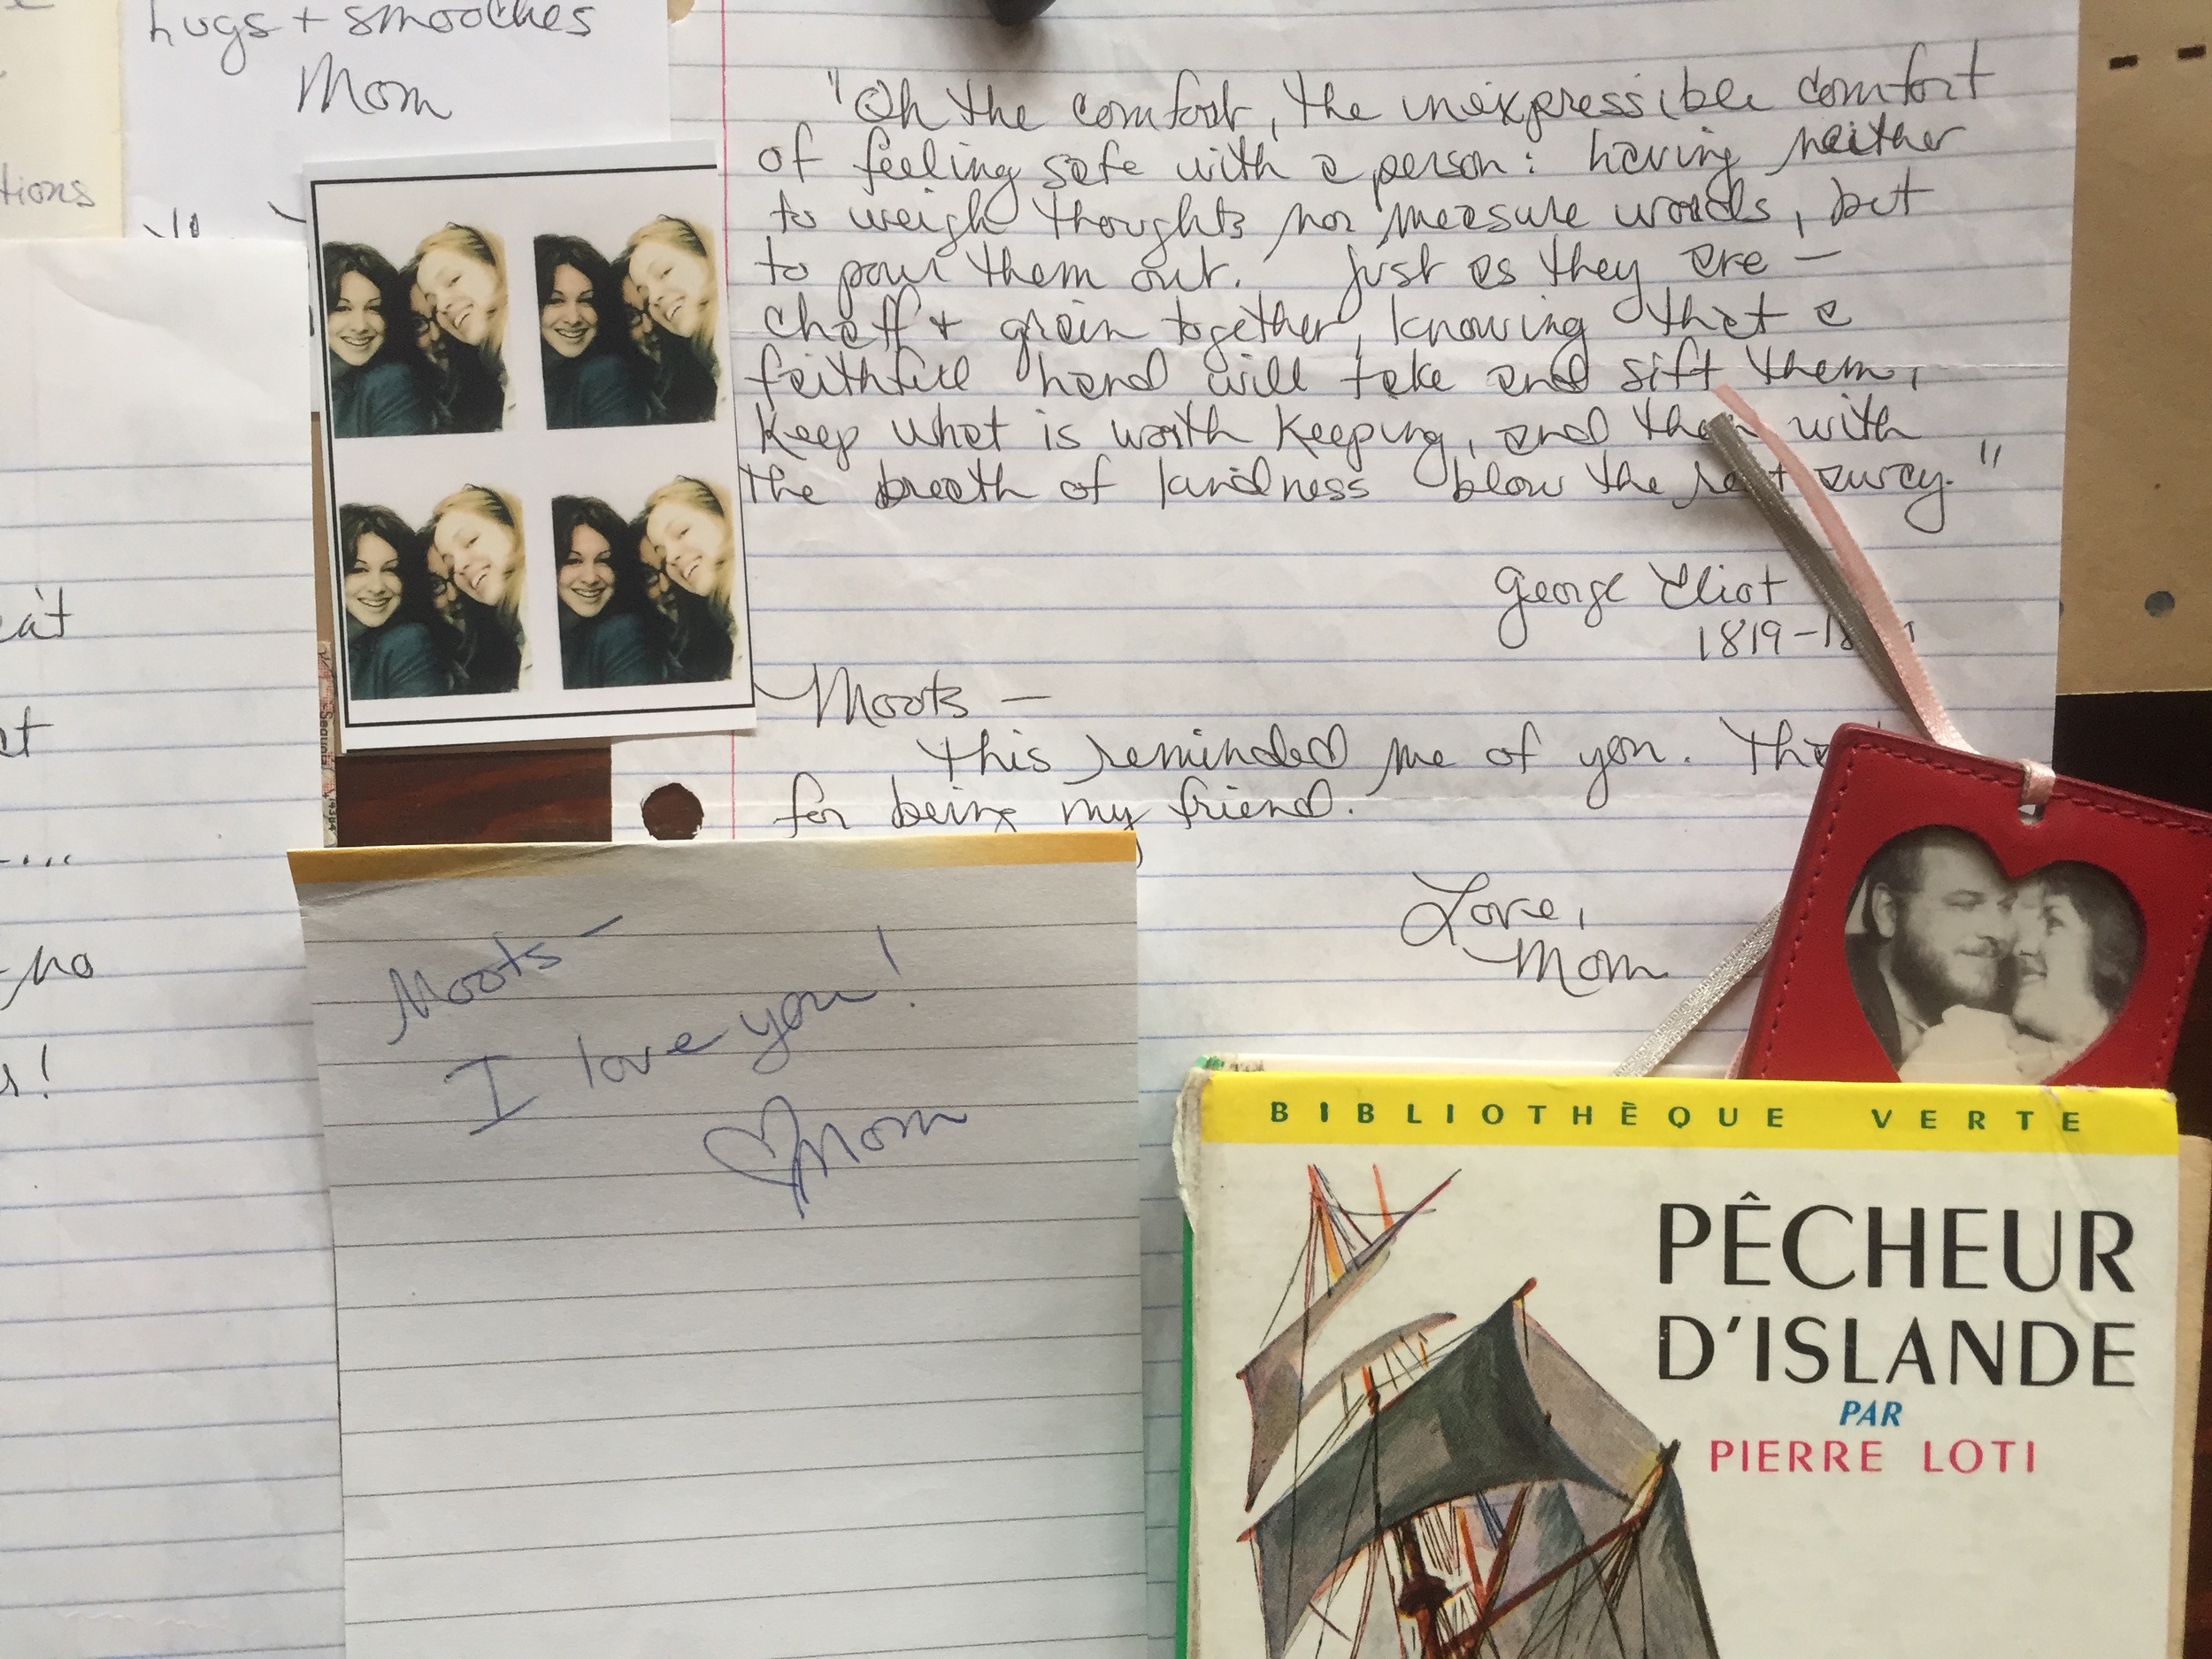 hugs + smooches
Mom
tions
"Oh the comfort, the inexpressible comfort
of feeling safe with a person: having neither
to weigh thoughts nor measure words, but
to pour them out. Just as they are —
chaff + grain together, knowing that a
faithful hand will take and sift them,
keep what is worth keeping, and then with
the breath of kindness blow the rest away."
George Eliot
1819-18
Moots —
this reminded me of you.
for being my friend.
Love,
Mom
Moots —
I love you!
♡ Mom
at
no
Sequoia
BIBLIOTHÈQUE VERTE
PÊCHEUR
D'ISLANDE
PAR
PIERRE LOTI